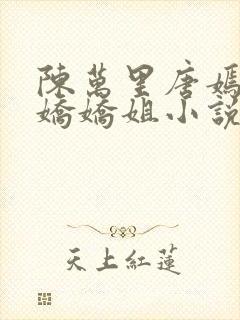 陳萬里唐嫣
嬌嬌姐小說
天上紅蓮